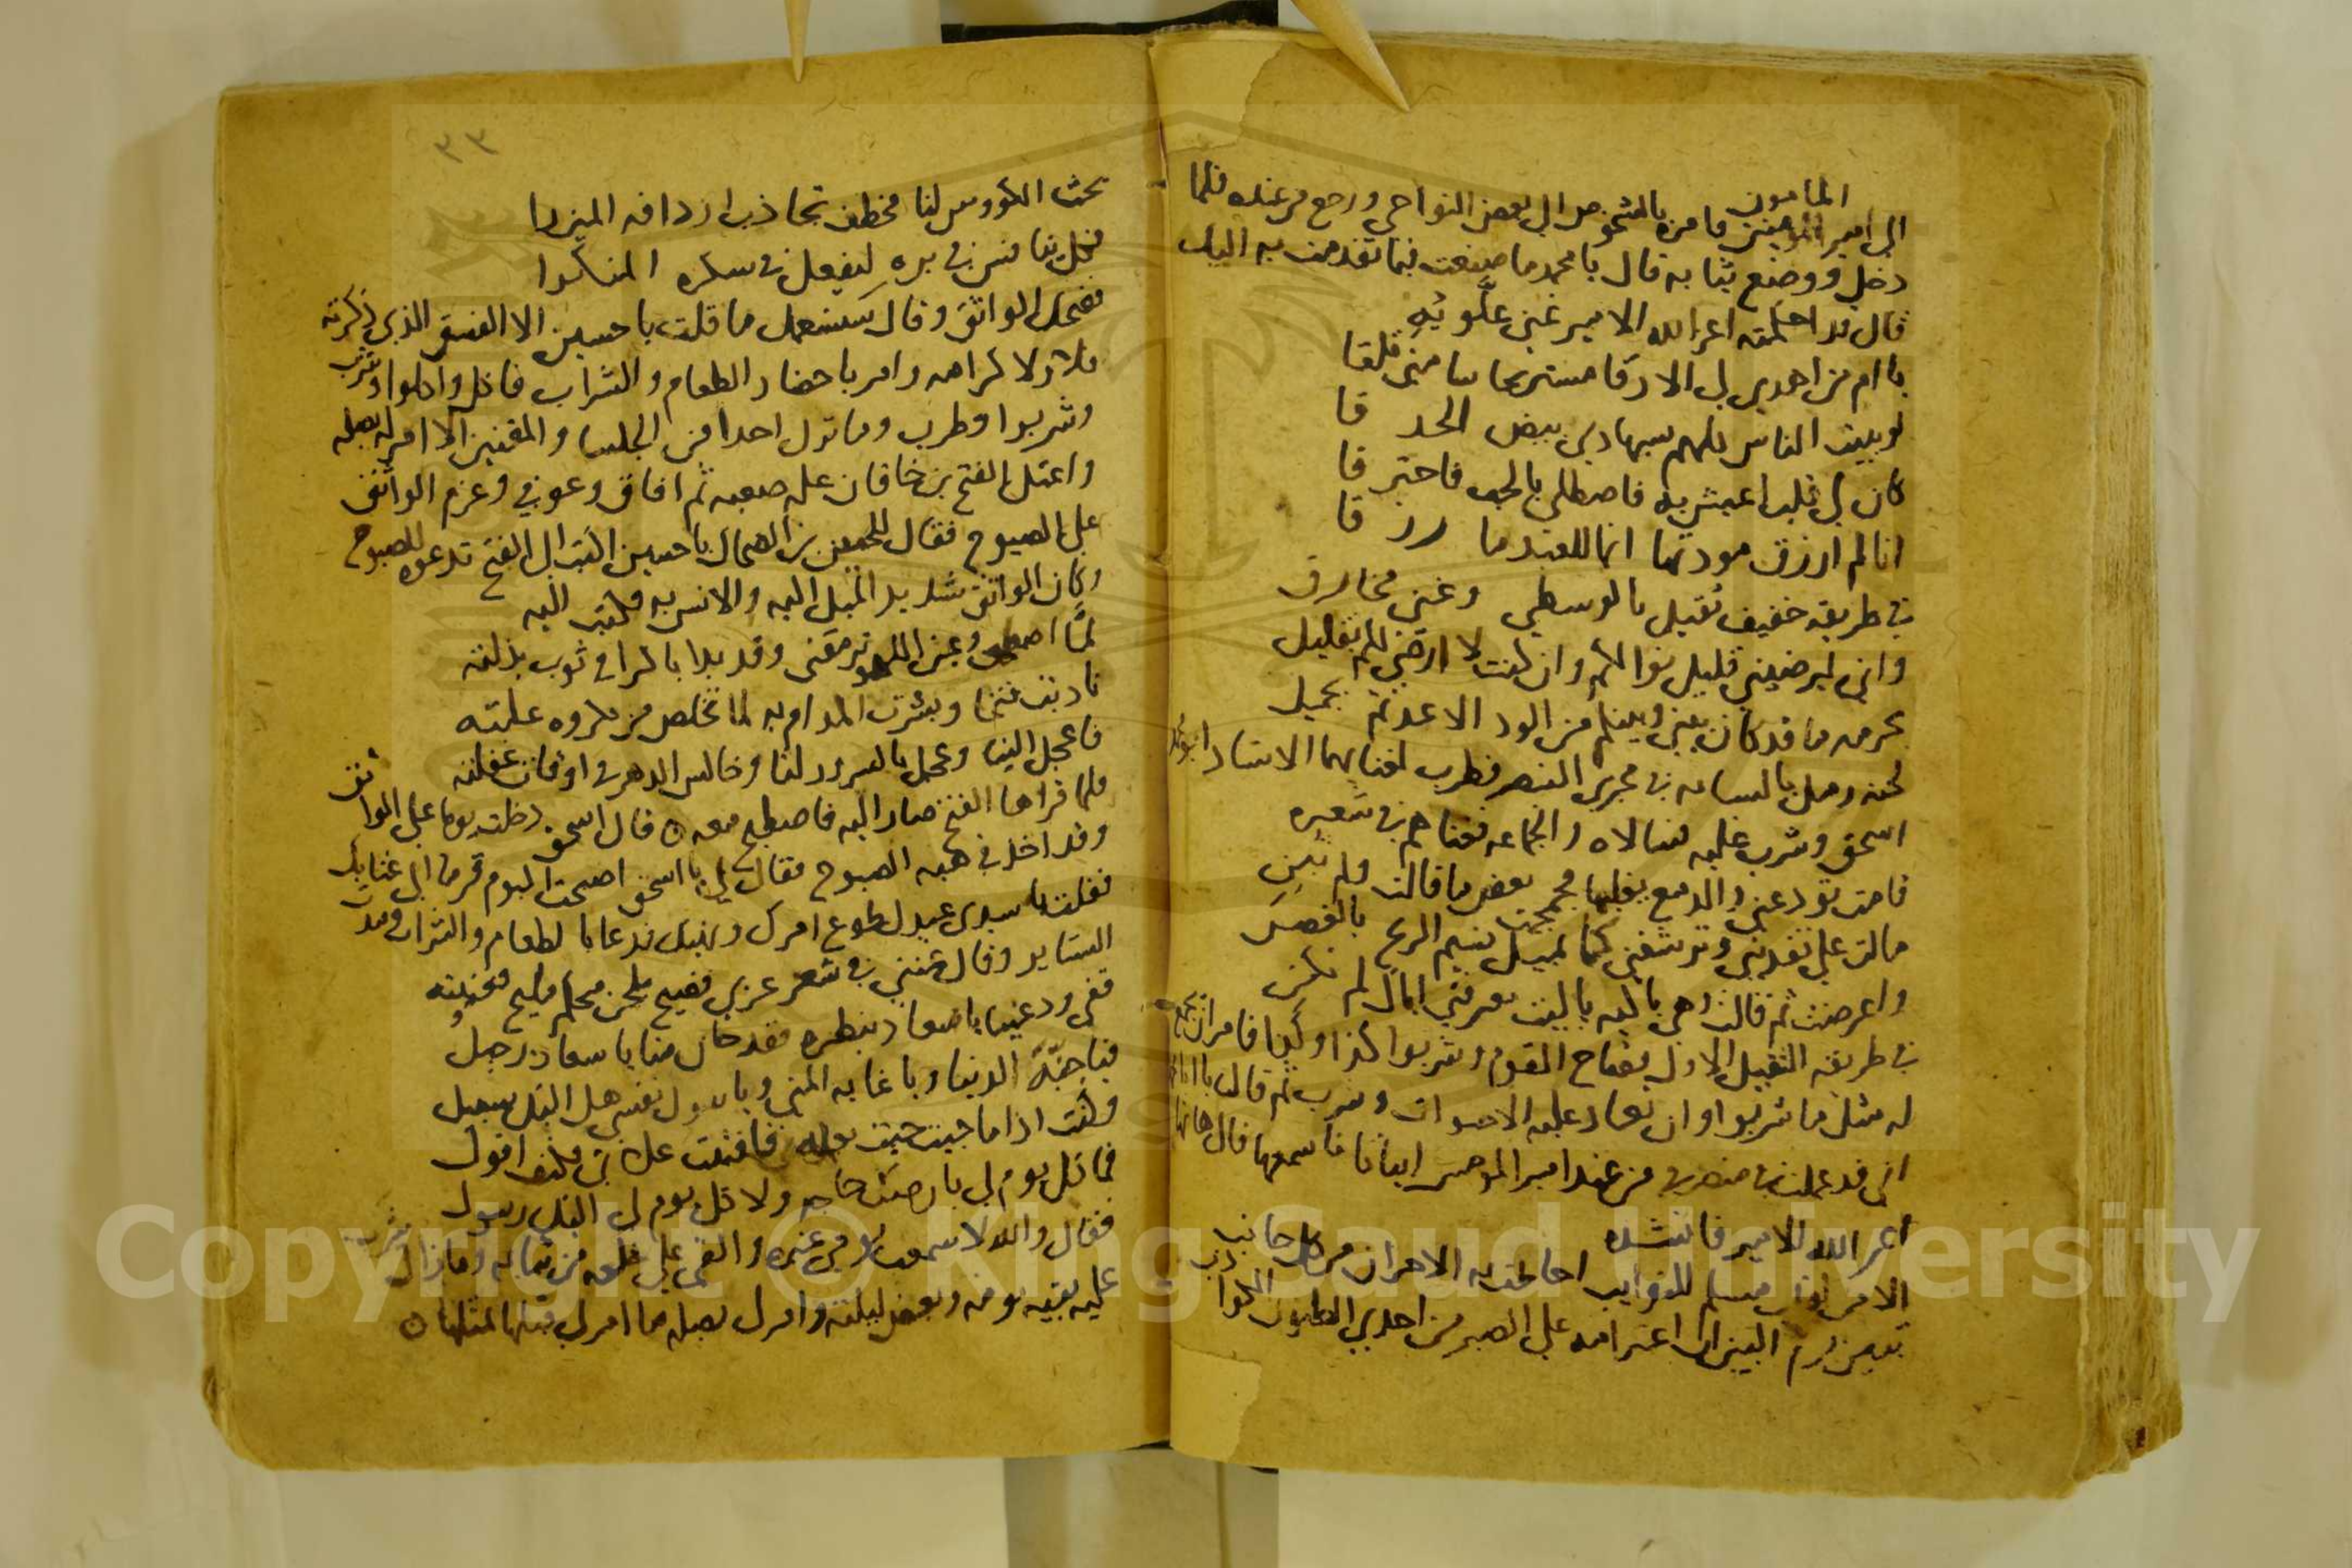 المامون
الى امير المومنين فامره بالشخوص الى بعض النواحي ورجع من عنده فلما
دخل ووضع ثيابه قال يا محمد ما صنعت فيما تقدمت به اليك
قال قد احكمته اعز الله الامير غنى علّويه
لو يبيت الناس كلهم بسهادي بيض الحد قا
كان لي قلب اعيش به فاصطلى بالحب فاحتر قا
انا لم ارزق مودتها انما للعبد ما رز قا
في طريقه خفيف ثقيل بالوسطى وغنى مخارق
واني ليرضيني قليل نوالكم وان كنت لا ارضى لكم بقليل
بحرمه ما قد كان بيني وبينكم من الود الا عدتم بجميل
لحنه رمل بالسبابه في مجرى البنصر فطرب لغنايهما الاستاد ابو محمد
اسحق وشرب عليه وسالاه والجماعه فغناهم في شعره
قامت تودعني والدمع يغلبها فجمجمت بعض ما قالت ولم تبن
مالت علي تفديني وترشفني كما تميل نسيم الريح بالغصن
واعرضت ثم قالت وهي باكيه يا ليت معرفتي اياك لم تكن
في طريقه الثقيل الاول فصاح القوم وشربوا كذا وكذا فامر ان يجمع
له مثل ما شربوا وان تعاد عليه الاصوات وشرب ثم قال يا ابا محمد
اني قد عملت في منصرفي من عند امير المومنين ابياتا فاسمعها قال هاتها
اعز الله الامير فانشده
الا من لقلب مسلم للنوايب احاطت به الاحزان من كل جانب
تبين يوم البين ان اعتزامه على الصبر من احدى الظنون الكواذب
٣٣
تحث الكووس لنا مخطف تجاذب اردافه الميزرا
فضحك الواثق وقال سنستعمل ما قلت يا حسين الا الفسق الذي ذكرته
فلا ولا كرامه وامر باحضار الطعام والشراب فاكل واكلوا وشرب
وشربوا وطرب وما ترك احدا من الجلسا والمغنين الا امر له بصله
واعتل الفتح بن خاقان عله صعبه ثم افاق وعوفي وعزم الواثق
على الصبوح فقال للحسين بن الضحاك يا حسين اكتب الى الفتح تدعوه للصبوح
وكان الواثق شديد الميل اليه والانس به فكتب اليه
لمّا اصطبحت وعين اللهو ترمقني وقد بدا باكرا في ثوب بذلته
ناديت فتحا وبشرت المدام به لما تخلص من مكروه علته
فاعجل الينا وعجل بالسرور لنا وخالس الدهر في اوقات غفلته
فلما قراها الفتح صار اليه فاصطبح معه ٥ قال اسحق دخلت يوما على الواثق
وقد اخذ في هبه الصبوح فقال لي يا اسحق اصبحت اليوم قرما الى غنايك
فقلت يا سيدي عبدك طوع امرك ونهيك فدعا بالطعام والشراب ومدت
الستاير وقال غنني في شعر عربي فصيح بلحن محكم مليح فغنيته
قفي ودعينا يا سعاد بنظره فقد حان منا يا سعاد رحيل
فيا جنّة الدنيا ويا غايه المنى ويا سول نفسي هل اليك سبيل
وكنت اذا ما جيت جيت بعله فافنيت علاتي فكيف اقول
فما كل يوم لي بارضك حاجه ولا كل يوم لي اليك رسول
فقال والله لا سمعت يومي غيره والقى علي خلعه من ثيابه وما زال يشرب
عليه بقيه يومه وبعض ليلته وامر لي بصله ما امر لي قبلها بمثلها ٥
Copyright © King Saud University